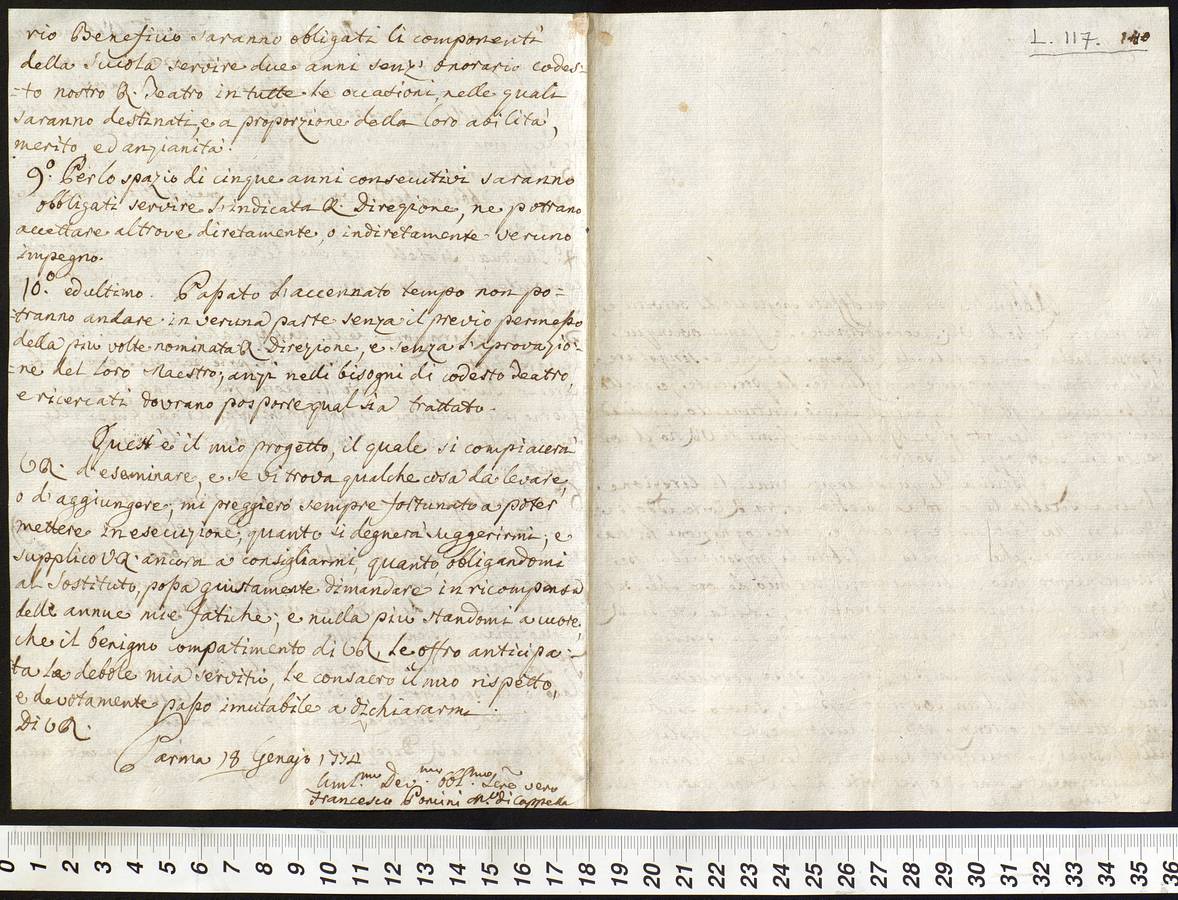 rio Beneficio saranno obligati li componenti
della scuola servire due anni senz' onorario codes=
=to nostro R. Teatro in tutte le occasioni, nelle quali
saranno destinati, e a proporzione della loro abilità,
merito, ed anzianità.
9°. Per lo spazio di cinque anni consecutivi saranno
obbligati servire l'indicata R. Direzione, ne potrano
accettare altrove diretamente, o indiretamente veruno
impegno.
10°. ed ultimo. Passato l'accennato tempo non po=
=tranno andare in veruna parte senza il previo permesso
della piu volte nominata R. Direzione, e senza l'aprovazio=
=ne del loro Maestro; anzi nelli bisogni di codesto Teatro,
e ricercati dovrano posporre qual sia trattato.
Quest' è il mio progetto, il quale si compiacerà
VR. d'eseminare, e se vi trova qualche cosa da levare,
o d'aggiungere, mi preggierò sempre fortunato a poter
mettere in esecuzione, quanto si degnerà suggerirmi; e
supplico VR. ancora a consigliarmi, quanto obligandomi
al Sostituto, possa giustamente dimandare in ricompensa
delle annue mie fatiche; e nulla più standomi a cuore,
che il benigno compatimento di VR. le offro anticipa=
ta la debole mia servitù, le consacro il mio rispetto,
e devotamente passo imutabile a dichiararmi
Di VR.
Parma 18 Genajo 1774
Uml.mo Dev.mo obl.mo Sre vero
Francesco Poncini M.o di Cappella
L. 117. 140
0 1 2 3 4 5 6 7 8 9 10 11 12 13 14 15 16 17 18 19 20 21 22 23 24 25 26 27 28 29 30 31 32 33 34 35 36